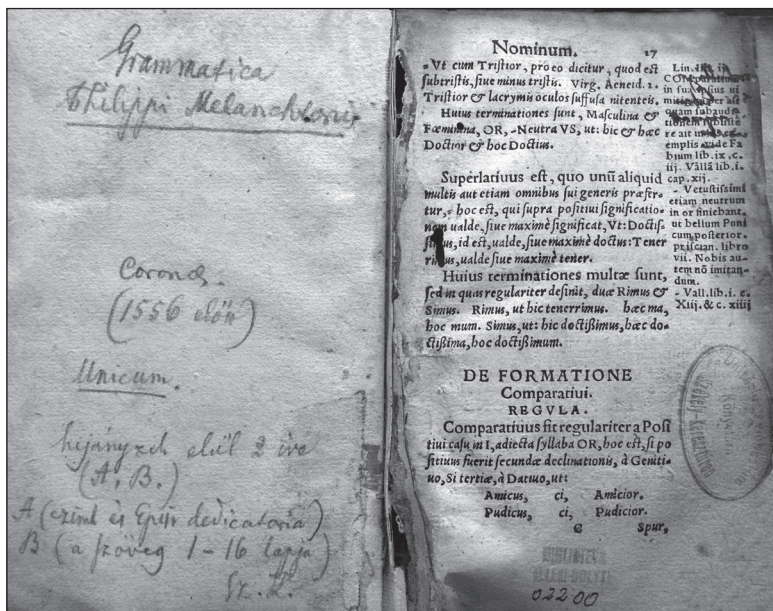 Grammatica
Philippi Melanchtonis
Coronæ.
(1556 előtt)
Unicum.
hiányzik elül 2 ive
(A. B.)
A (czíml és Epist dedicatoria)
B (a szöveg 1-16 lapja)
Sz. K.
Nominum. 17
Vt cum Tristior, pro eo dicitur, quod est
subtristis, siue minus tristis. Virg. Aeneid. 1.
Tristior & lacrymis oculos suffusa nitenteis.
Huius terminationes sunt, Masculina &
Fœminina, OR, Neutra VS, ut: hic & hæc
Doctior & hoc Doctius.
Superlatiuus est, quo unũ aliquid
multis aut etiam omnibus sui generis præfer-
tur, hoc est, qui supra positiui significatio-
nem ualde, siue maximè significat, Vt: Doctis-
simus, id est, ualde, siue maximè doctus: Tener
rimus, ualde siue maximè tener.
Huius terminationes multæ sunt,
sed in quas regulariter desinũt, duæ Rimus &
Simus. Rimus, ut hic tenerrimus. hæc ma,
hoc mum. Simus, ut: hic doctißimus, hæc do-
ctißima, hoc doctißimum.
DE FORMATIONE
Comparatiui.
REGVLA.
Comparatiuus fit regulariter a Posi
tiui casu in I, adiecta syllaba OR, hoc est, si po
sitiuus fuerit secundæ declinationis, à Geniti-
uo, Si tertiæ, à Datiuo, ut:
Amicus, ci, Amicior.
Pudicus, ci, Pudicior.
C Spur,
Lin. in
emplis uide Fa
bium lib. ix. c.
iij. Vallã lib. i.
cap. xij.
- Vetustissimi
etiam neutrum
in or finiebant,
ut bellum Puni
cum posterior.
priscian. libro
vii. Nobis au-
tem nõ imitan-
dum.
- Vall. lib. i. c.
Xiij. & c. xiiij
02200